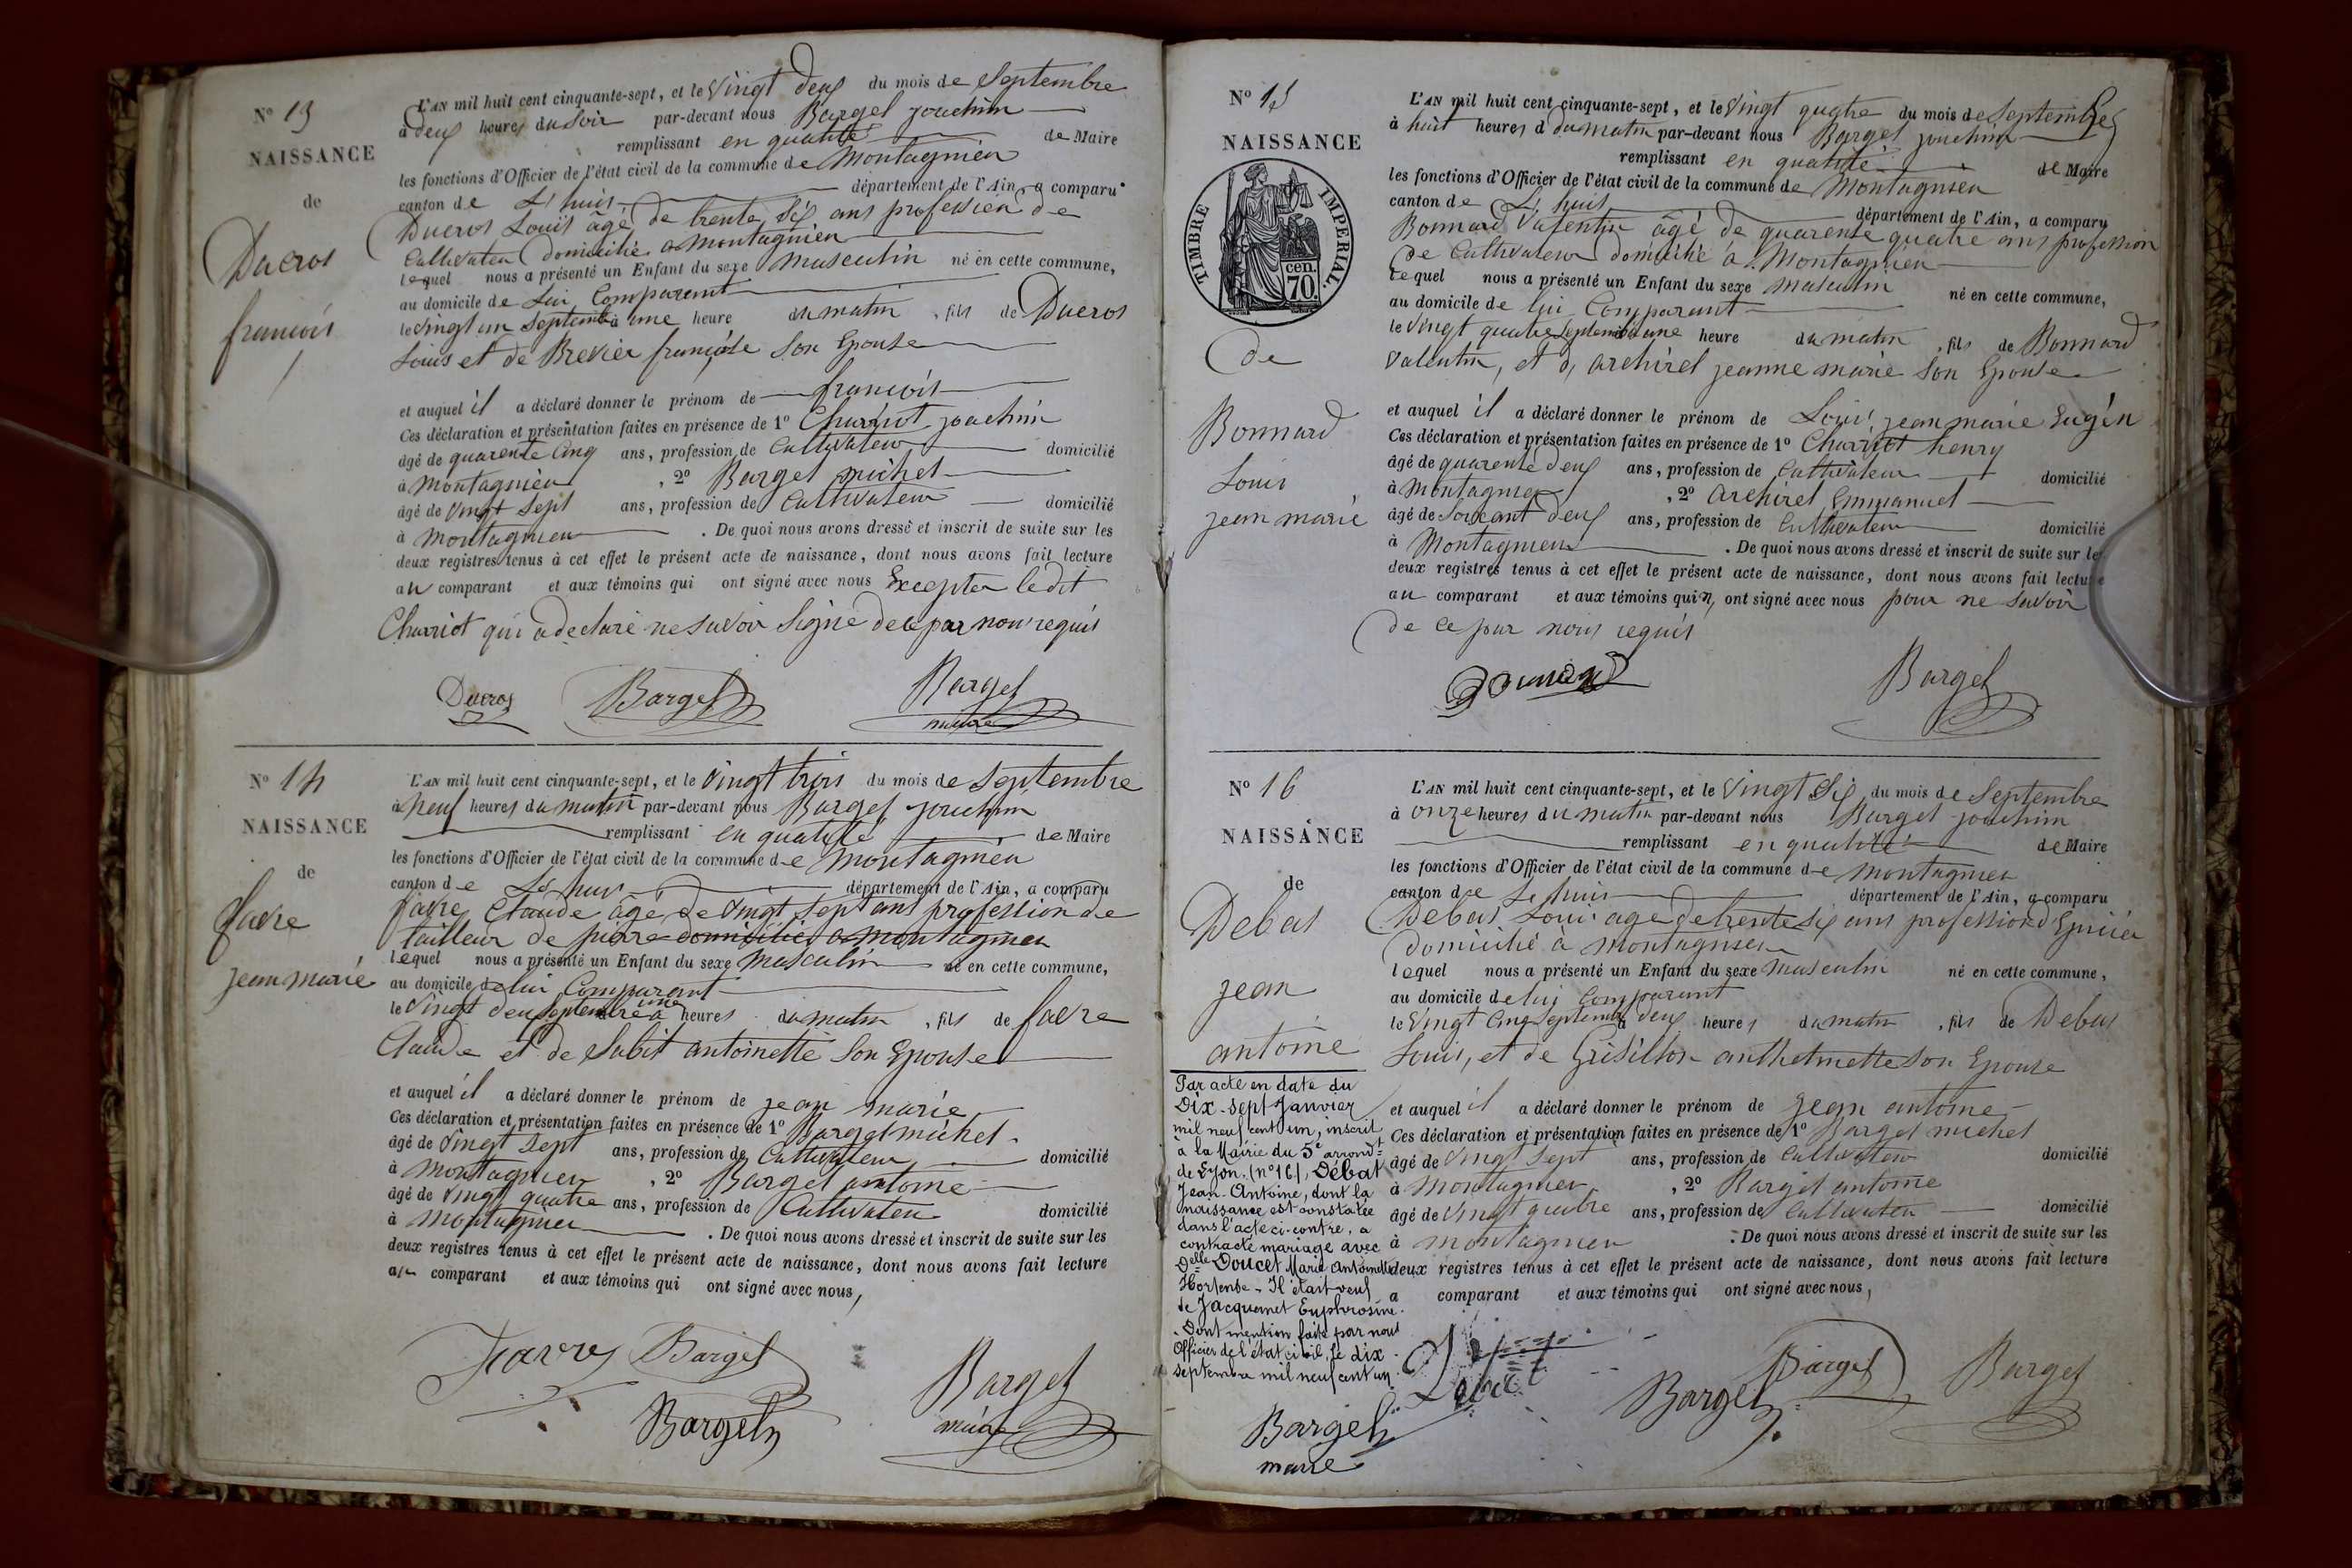 N° 13
NAISSANCE
de
Ducros
francois
L'AN mil huit cent cinquante-sept, et le vingt deux du mois de Septembre
à deux heures du soir par-devant nous Bargel joachim
remplissant en qualité de Maire
les fonctions d'Officier de l'état civil de la commune de Montagnieu
canton de L'huis département de l'Ain, a comparu
Ducros Louis âgé de trente six ans profession de
Cultivateur domicilié a montagnieu
lequel nous a présenté un Enfant du sexe masculin né en cette commune,
au domicile de Lui Comparant
le vingt un Septembre à une heure du matin, fils de Ducros
Louis et de Brevier françoise Son Epouse
et auquel il a déclaré donner le prénom de francois
Ces déclaration et présentation faites en présence de 1° Charriot joachim
âgé de quarente Cinq ans, profession de Cultivateur domicilié
à montagnieu, 2° Bargel michel
âgé de vingt Sept ans, profession de Cultivateur domicilié
à montagnieu. De quoi nous avons dressé et inscrit de suite sur les
deux registres tenus à cet effet le présent acte de naissance, dont nous avons fait lecture
au comparant et aux témoins qui ont signé avec nous Excepter ledit
Charriot qui a declaré ne savoir Signé de ce par nous requis
Ducros Bargel Bargel
maire
N° 14
NAISSANCE
de
favre
jean marie
L'AN mil huit cent cinquante-sept, et le vingt trois du mois de Septembre
à neuf heures du matin par-devant nous Bargel joachim
remplissant en qualité de Maire
les fonctions d'Officier de l'état civil de la commune de Montagnieu
canton de L'huis département de l'Ain, a comparu
favre Claude âgé de vingt Sept ans profession de
tailleur de pierre domicilié a montagnieu
lequel nous a présenté un Enfant du sexe masculin né en cette commune,
au domicile de lui Comparant
le vingt deux Septembre à une heures du matin, fils de favre
Claude et de Subit antoinette Son Epouse
et auquel il a déclaré donner le prénom de jean marie
Ces déclaration et présentation faites en présence de 1° Bargel michel
âgé de vingt Sept ans, profession de Cultivateur domicilié
à montagnieu, 2° Bargel antoine
âgé de vingt quatre ans, profession de Cultivateur domicilié
à montagnieu. De quoi nous avons dressé et inscrit de suite sur les
deux registres tenus à cet effet le présent acte de naissance, dont nous avons fait lecture
au comparant et aux témoins qui ont signé avec nous,
Favre Bargel Bargel
Bargel maire
N° 15
NAISSANCE
TIMBRE IMPERIAL.
70 cen.
de
Bonnard
Louis
jean marie
L'AN mil huit cent cinquante-sept, et le vingt quatre du mois de Septembre
à huit heures d du matin par-devant nous Bargel joachim
remplissant en qualité de Maire
les fonctions d'Officier de l'état civil de la commune de Montagnieu
canton de L'huis département de l'Ain, a comparu
Bonnard Valentin âgé de quarente quatre ans profession
de Cultivateur domicilié à Montagnieu
lequel nous a présenté un Enfant du sexe masculin né en cette commune,
au domicile de lui Comparant
le vingt quatre Septembre à une heure du matin, fils de Bonnard
Valentin, et d, archirel jeanne marie Son Epouse
et auquel il a déclaré donner le prénom de Louis jean marie Eugèn
Ces déclaration et présentation faites en présence de 1° Charriot henry
âgé de quarente deux ans, profession de Cultivateur domicilié
à Montagnieu, 2° archirel Emmanuel
âgé de Soixant deux ans, profession de Cultivateur domicilié
à Montagnieu. De quoi nous avons dressé et inscrit de suite sur les
deux registres tenus à cet effet le présent acte de naissance, dont nous avons fait lecture
au comparant et aux témoins qui n, ont signé avec nous pour ne savoir
de ce par nous requis
Bonnard Bargel
N° 16
NAISSANCE
de
Debat
jean
antoine
Par acte en date du
Dix-sept Janvier
mil neuf cent un, inscrit
à la Mairie du 5e arrondt
de Lyon (n°16), Débat
Jean-Antoine, dont la
naissance est constatée
dans l'acte ci-contre, a
contracté mariage avec
Delle Doucet Marie Antoinette
Hortense - Il était veuf
de Jacquemet Euphrosine.
Dont mention faite par nous
Officier de l'état civil, le dix
septembre mil neuf cent un.
Bargel
maire
L'AN mil huit cent cinquante-sept, et le vingt Six du mois de Septembre
à onze heures du matin par-devant nous Bargel joachim
remplissant en qualité de Maire
les fonctions d'Officier de l'état civil de la commune de montagnieu
canton de L'huis département de l'Ain, a comparu
Debat Louis age de trente Six ans profession d'Epicier
domicilié à montagnieu
lequel nous a présenté un Enfant du sexe masculin né en cette commune,
au domicile de lui Comparant
le vingt Cinq Septembre à deux heures du matin, fils de Debat
Louis, et de Grisillon anthelmette Son Epouse
et auquel il a déclaré donner le prénom de jean antoine
Ces déclaration et présentation faites en présence de 1° Bargel michel
âgé de vingt Sept ans, profession de Cultivateur domicilié
à montagnieu, 2° Bargel antoine
âgé de vingt quatre ans, profession de Cultivateur domicilié
à montagnieu. De quoi nous avons dressé et inscrit de suite sur les
deux registres tenus à cet effet le présent acte de naissance, dont nous avons fait lecture
a comparant et aux témoins qui ont signé avec nous,
Debat Bargel Bargel Bargel